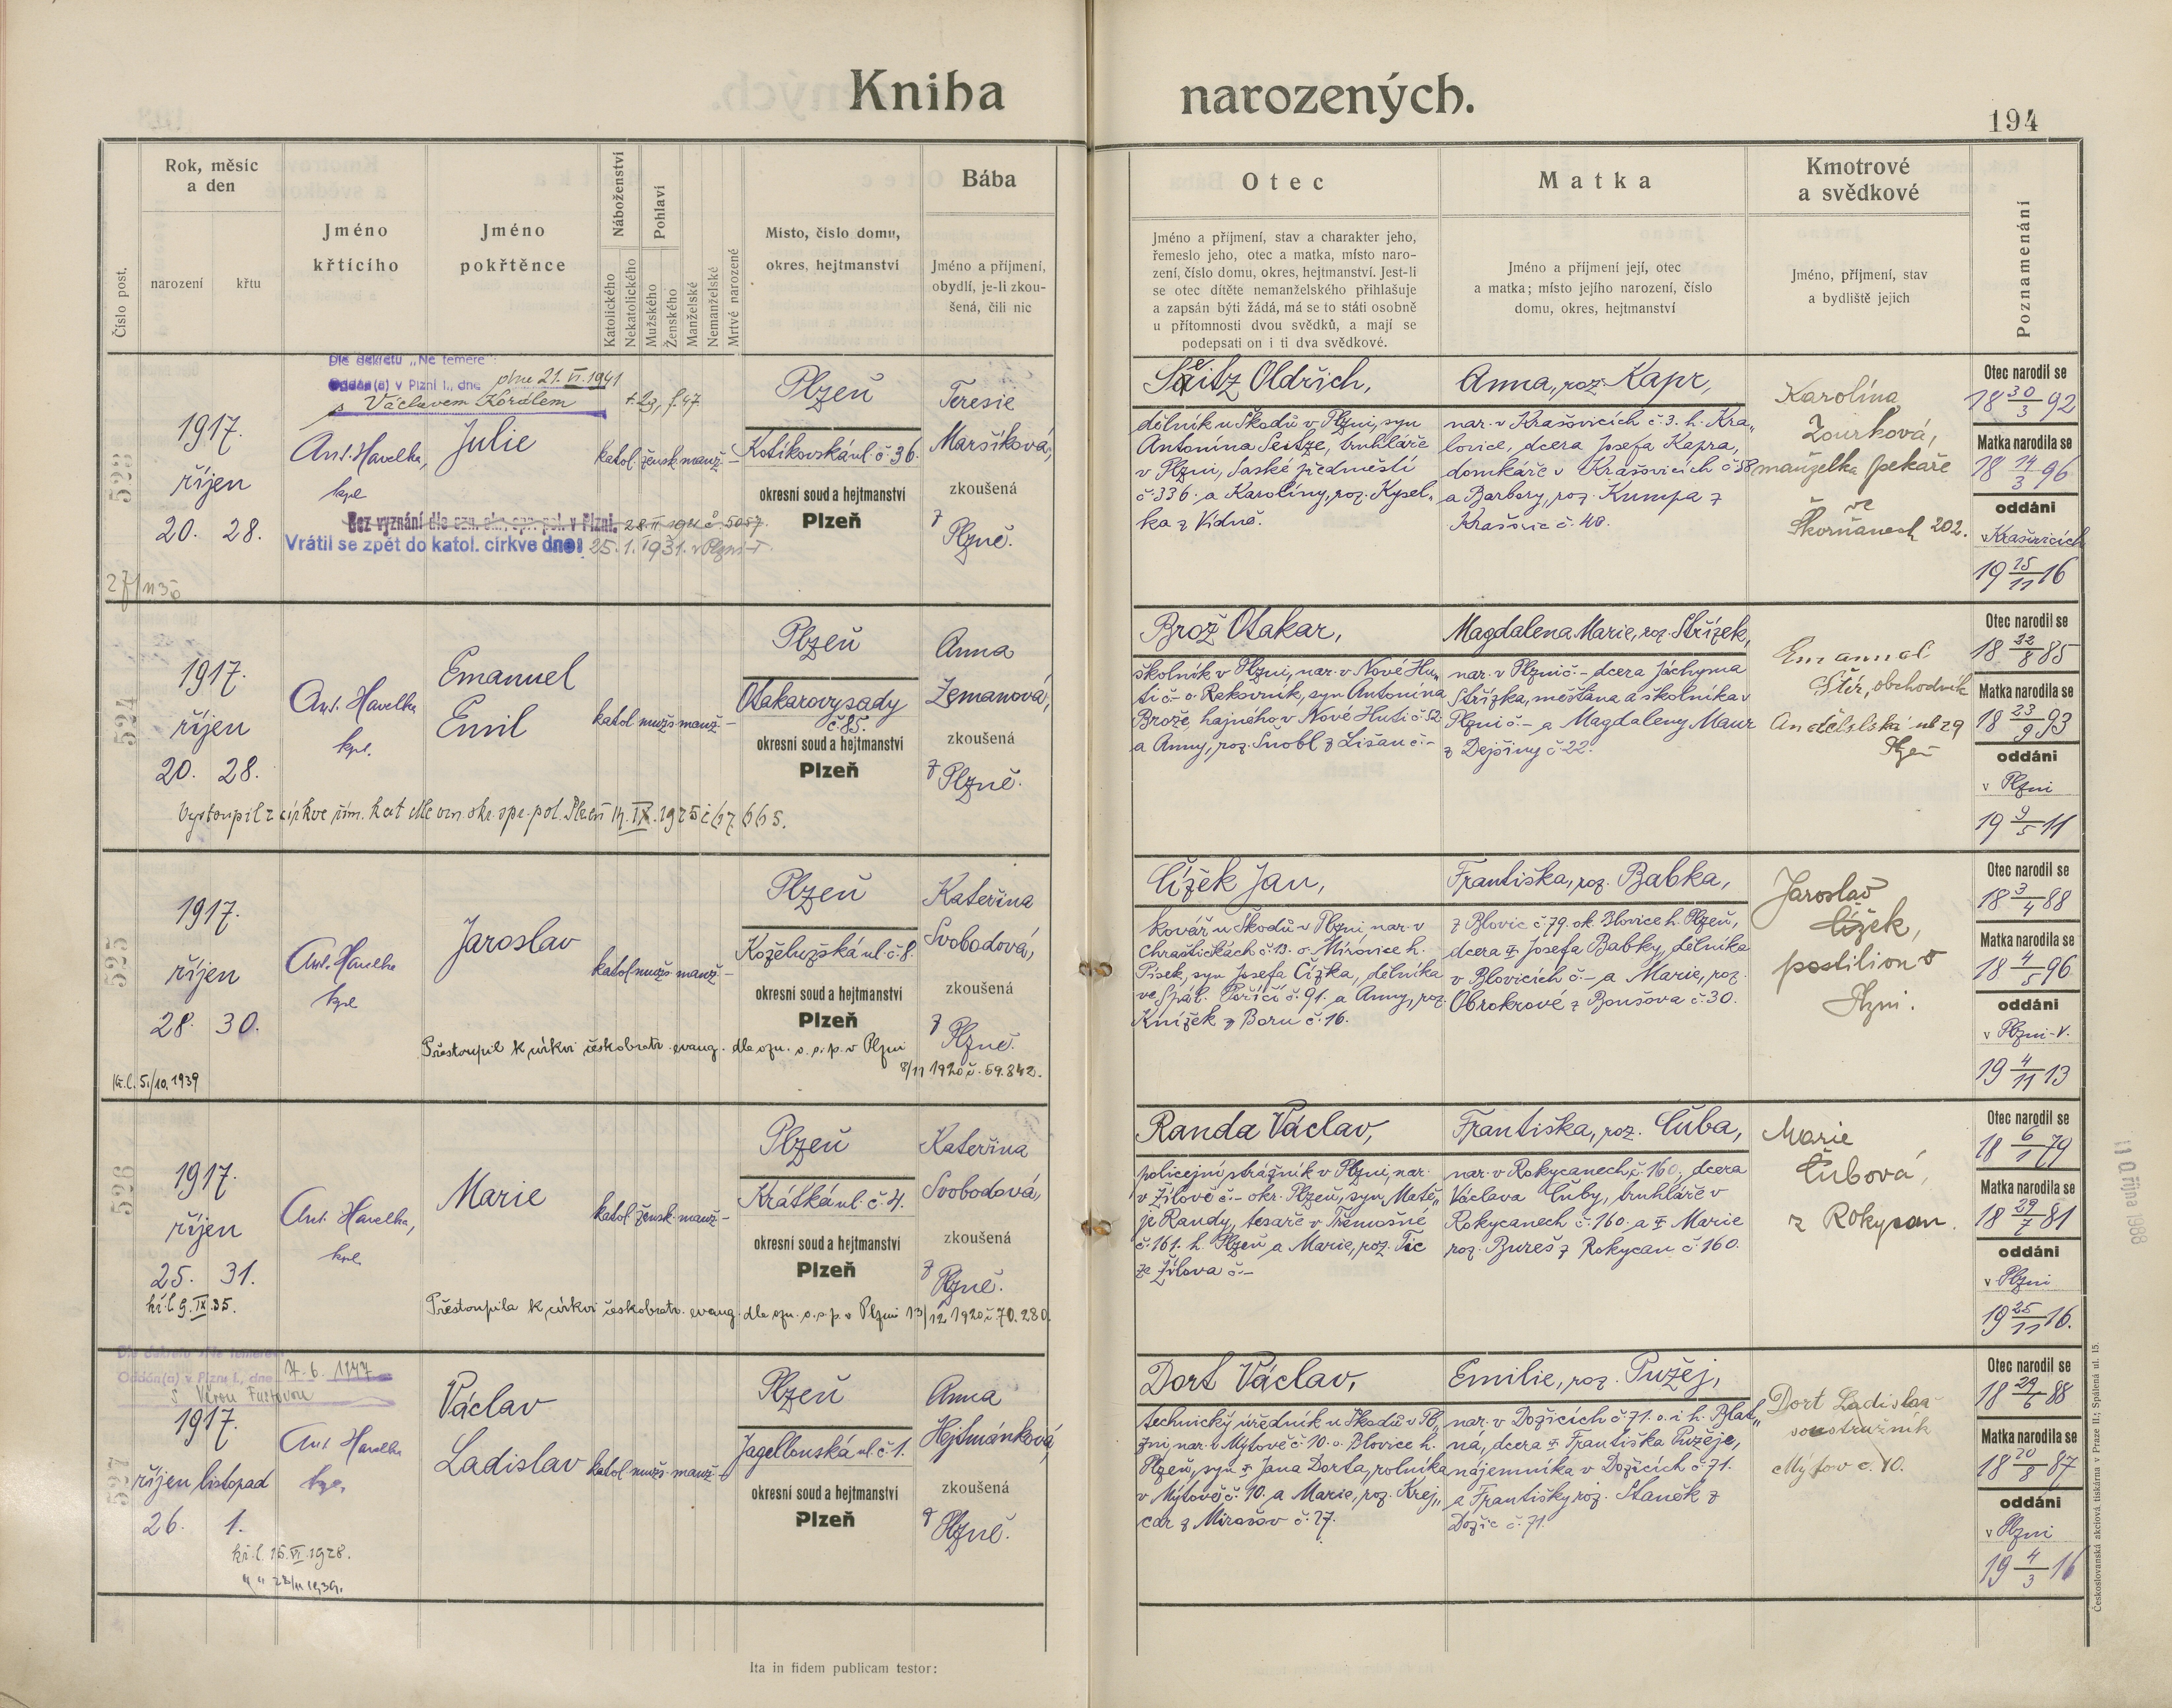 Kniha narozených.
194
Číslo post.
Rok, měsíc
a den
narození
křtu
Jméno
křtícího
Jméno
pokřtěnce
Náboženství
Katolického
Nekatolického
Pohlaví
Mužského
Ženského
Manželské
Nemanželské
Mrtvé narozené
Místo, číslo domu,
okres, hejtmanství
Bába
Jméno a příjmení,
obydlí, je-li zkou-
šená, čili nic
Otec
Jméno a příjmení, stav a charakter jeho,
řemeslo jeho, otec a matka, místo naro-
zení, číslo domu, okres, hejtmanství. Jest-li
se otec dítěte nemanželského přihlašuje
a zapsán býti žádá, má se to státi osobně
u přítomnosti dvou svědků, a mají se
podepsati on i ti dva svědkové.
Matka
Jméno a příjmení její, otec
a matka; místo jejího narození, číslo
domu, okres, hejtmanství
Kmotrové
a svědkové
Jméno, příjmení, stav
a bydliště jejich
Poznamenání
523
Dle dekretu „Ne temere":
Oddán(a) v Plzni I., dne dne 21. VI. 1941
s Václavem Korálem
1917.
říjen
20. 28.
Ant. Havelka,
kpl
Julie
katol. žensk. manž. –
Bez vyznání dle ozn. ok. spr. pol. v Plzni. 28. II 1921 č 5057.
Vrátil se zpět do katol. církve dne: 25. 1. 1931. v Plzni-I.
Plzeň
Kotíkovská ul. č 36.
okresní soud a hejtmanství
Plzeň
Teresie
Maršíková,
zkoušená
z Plzně.
Seitz Oldřich,
dělník u Škodů v Plzni, syn
Antonína Seitze, truhláře
v Plzni, Saské předměstí
č. 336. a Karolíny, roz. Kysel„
ka z Vídně.
Anna, roz. Kapr,
nar. v Krašovicích č. 3. h. Kra„
lovice, dcera Josefa Kapra,
domkáře v Krašovicích č 58
a Barbory, roz. Kumpa z
Krašovic č. 40.
Karolína
Zourková,
manželka pekaře
ve
Škorňanech 202.
Otec narodil se
18 30/3 92
Matka narodila se
18 14/3 96
oddáni
v Krašovicích
19 25/11 16
524
1917.
říjen
20. 28.
Ant. Havelka
kpl.
Emanuel
Emil
katol. mužs. manž. –
Vystoupil z církve řím. kat dle ozn. okr. spr. pol. Plzeň 14. IX. 1925 č 67.665.
Plzeň
Otakarovy sady
č. 85.
okresní soud a hejtmanství
Plzeň
Anna
Zemanová,
zkoušená
z Plzně.
Brož Otakar,
školník v Plzni, nar. v Nové Hu„
ti č – o. Rakovník, syn Antonína
Brože, hajného v Nové Huti č. 52.
a Anny, roz. Šnobl z Lišan č. –
Magdalena Marie, roz. Střízek,
nar. v Plzni č – dcera Jáchyma
Střízka, měšťana a školníka v
Plzni č – a Magdaleny Maur
z Dejšiny č. 22.
Emanuel
Stěr, obchodník
Andělská ul 29
Plzeň
Otec narodil se
18 22/8 85
Matka narodila se
18 23/9 93
oddáni
v Plzni
19 9/5 11
525
1917.
říjen
28. 30.
Kř. l. 5./10. 1939
Ant. Havelka
kpl
Jaroslav
katol. mužs. manž. –
Přestoupil k církvi českobratr. evang. dle ozn. o. s. p. v Plzni
8/11 1920 č. 59.842.
Plzeň
Koželužská ul. č. 8.
okresní soud a hejtmanství
Plzeň
Kateřina
Svobodová,
zkoušená
z Plzně.
Čížek Jan,
kovář u Škodů v Plzni, nar. v
Chraštičkách č. 13. o. Mirovice h.
Písek, syn Josefa Čížka, dělníka
ve Spál. Poříčí č. 91. a Anny, roz.
Knížek z Boru č. 16.
Františka, roz. Babka,
z Blovic č. 79. ok. Blovice h. Plzeň,
dcera † Josefa Babky, dělníka
v Blovicích č. – a Marie, roz.
Obrokrové z Boušova č. 30.
Jaroslav
Čížek,
postilion v
Plzni.
Otec narodil se
18 3/4 88
Matka narodila se
18 4/5 96
oddáni
v Plzni-V.
19 4/11 13
526
1917.
říjen
25. 31.
kř. l. 9. IX. 35.
Ant. Havelka,
kpl.
Marie
katol. žensk. manž. –
Přestoupila k církvi českobratr. evang. dle ozn. o. s. p. v Plzni 13/12 1920 č. 70.280.
Plzeň
Krátká ul. č. 4.
okresní soud a hejtmanství
Plzeň
Kateřina
Svobodová,
zkoušená
z Plzně.
Randa Václav,
policejní strážník v Plzni, nar.
v Žilově č. – okr. Plzeň, syn Matě„
je Randy, tesaře v Třemošné
č. 161. h. Plzeň a Marie, roz. Tic
ze Žilova č. –
Františka, roz. Čuba,
nar. v Rokycanech č. 160., dcera
Václava Čuby, truhláře v
Rokycanech č. 160. a † Marie
roz. Bureš z Rokycan č. 160.
Marie
Čubová,
z Rokycan.
Otec narodil se
18 6/1 79
Matka narodila se
18 29/7 81
oddáni
v Plzni
19 25/11 16.
11 října 1988
527
Dle dekretu „Ne temere"
Oddán(a) v Plzni I., dne 7. 6. 1947
s Věrou
1917.
říjen listopad
26. 1.
kř. l. 15. VI. 1928.
Ant Havelka
kpl.
Václav
Ladislav
katol. mužs. manž. –
Plzeň
Jagellonská ul. č 1.
okresní soud a hejtmanství
Plzeň
Anna
Hejtmánková,
zkoušená
z Plzně.
Dort Václav,
technický úředník u Škodů v Pl„
zni, nar. v Mýtově č. 10. o. Blovice h.
Plzeň, syn † Jana Dorta, rolníka
v Mýtově č. 10. a Marie, roz. Krej„
čar z Mirošov č. 27.
Emilie, roz. Pužej,
nar. v Dožicích č. 71. o. i h. Blat„
ná, dcera † Františka Pužeje,
nájemníka v Dožicích č. 71.
a Františky roz. Staněk z
Dožic č. 71.
Dort Ladislav
soustružník
Mýtov č. 10.
Otec narodil se
18 29/6 88
Matka narodila se
18 20/8 87
oddáni
v Plzni
19 4/3 16
Ita in fidem publicam testor:
Českoslovanská akciová tiskárna v Praze II.; Spálená ul. 15.